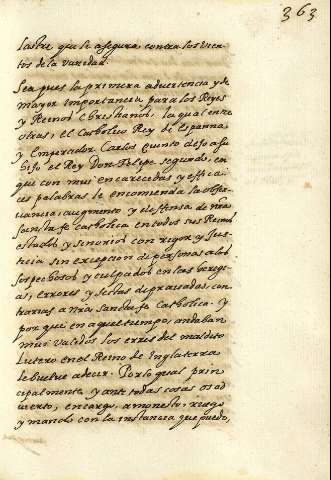 363
lastre que se asegura contra los vien-
tos de la vanedad.
Sea pues la primera advertencia y de
mayor importancia para los Reyes
y Reinos Christianos, la qual entre
otras, el Catholico Rey de Espanna,
y Emperador Carlos Quinto dejo a su
hijo el Rey Don Felipe segundo, en
que con mui encarecedas y effica-
ces palabras le encomienda la obser-
vancia, augmento, y defensa de nra
Sancta fe Catholica en todos sus Reinos
estados, y sinorios con rigor y Jus-
ticia sin excepcion de personas a los
sospechosos y culpados en las heregi-
as, errores, y sectas depravadas con-
trarias a nra Sancta fe Catholica. Y
por que en aquel tiempo, andaban
mui validos los erres del maldito
Lutero en el Reino de Inglaterra
le buelve a decir. Por lo qual prin-
cipalmente, y ante todas cosas os ad
vierto, encargo, amonesto, ruego
y mando con la instancia que puedo,